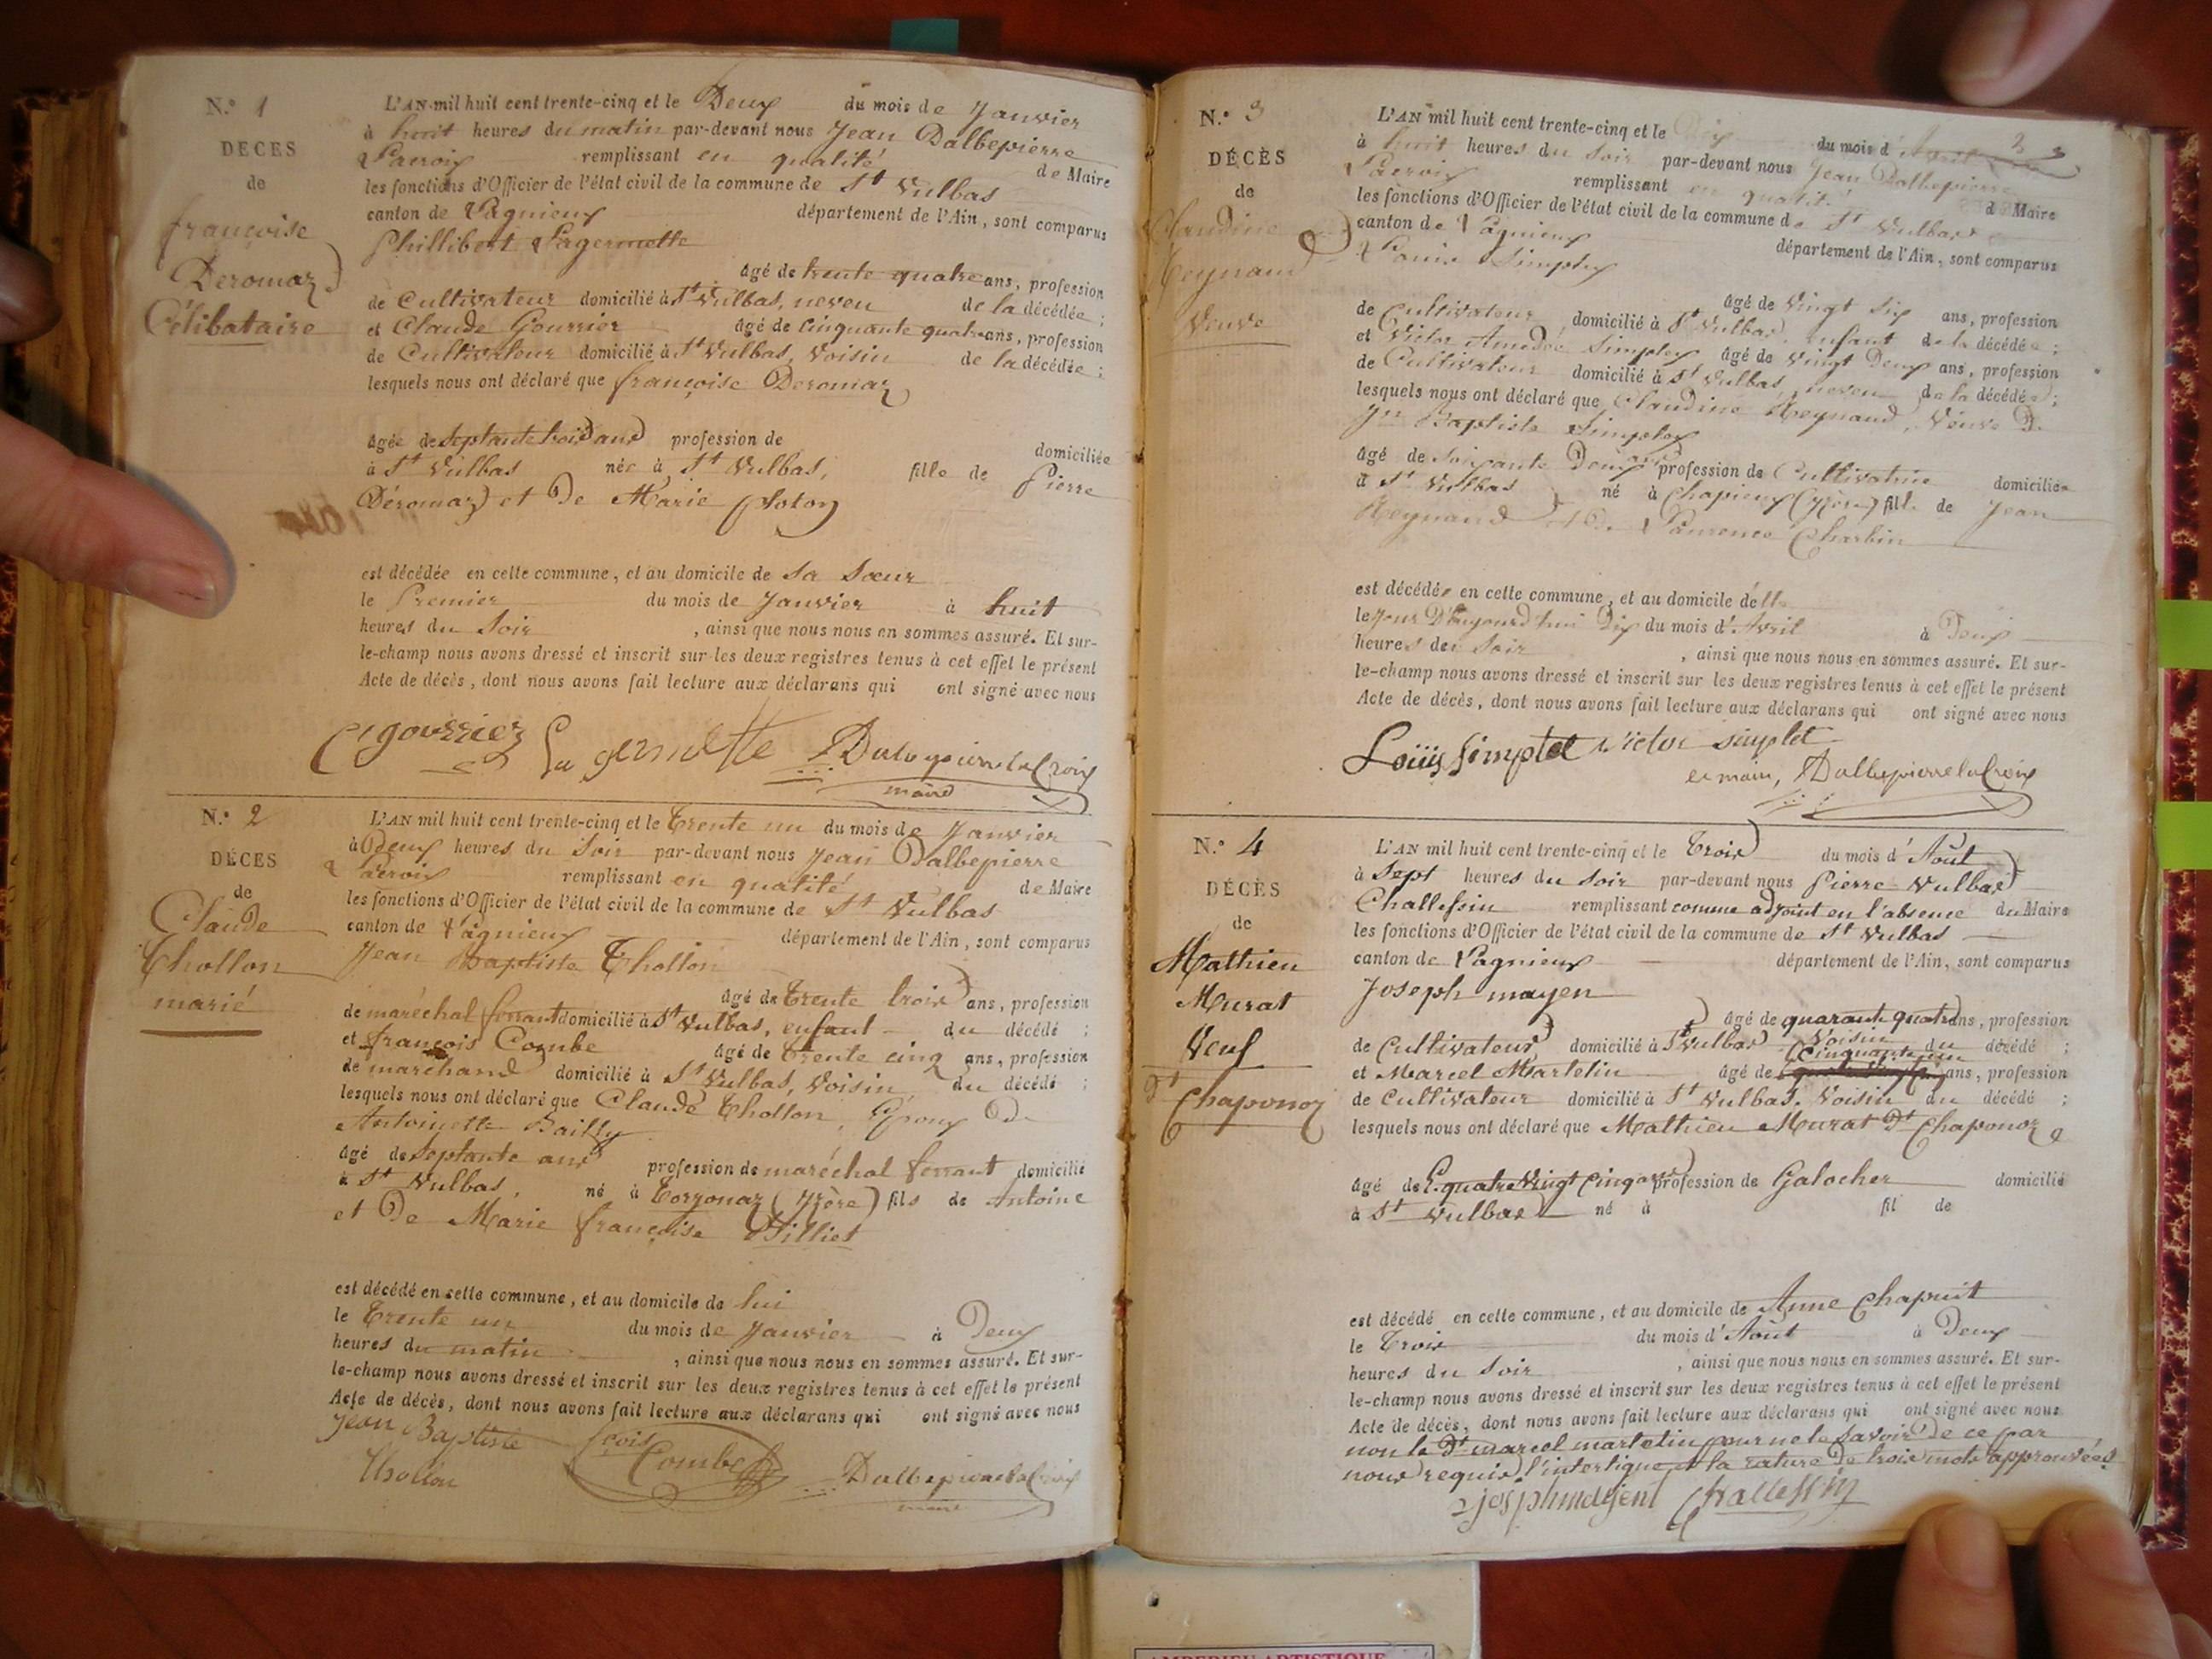 N.° 1
DÉCES
de
françoise
Deromaz
Célibataire
L'AN mil huit cent trente-cinq et le Deux du mois de Janvier
à huit heures du matin par-devant nous Jean Dalbepierre
Lacroix remplissant en qualité de Maire
les fonctions d'Officier de l'état civil de la commune de St Vulbas
canton de Lagnieux département de l'Ain, sont comparus
Phillibert Lagermette
âgé de trente quatre ans, profession
de Cultivateur domicilié à St Vulbas, neveu de la décédée ;
et Claude Gourrier âgé de Cinquante quatre ans, profession
de Cultivateur domicilié à St Vulbas, Voisin de la décédée ;
lesquels nous ont déclaré que françoise Deromaz
âgée de septante trois ans profession de domiciliée
à St Vulbas née à St Vulbas, fille de Pierre
Déromaz et De Marie
est décédée en cette commune, et au domicile de Sa Sœur
le Premier du mois de Janvier à huit
heures du Soir , ainsi que nous nous en sommes assuré. Et sur-
le-champ nous avons dressé et inscrit sur les deux registres tenus à cet effet le présent
Acte de décès, dont nous avons fait lecture aux déclarans qui ont signé avec nous
Cl gourrier La germette Dalbepierre laCroix
maire
N.° 2
DÉCES
de
Claude
Thollon
marié
L'AN mil huit cent trente-cinq et le trente un du mois de Janvier
à Deux heures du Soir par-devant nous Jean Dalbepierre
Lacroix remplissant en qualité de Maire
les fonctions d'Officier de l'état civil de la commune de St Vulbas
canton de Lagnieux département de l'Ain, sont comparus
Jean Baptiste Thollon
âgé de trente trois ans, profession
de maréchal ferrant domicilié à St Vulbas, enfant du décédé ;
et françois Combe âgé de trente cinq ans, profession
de marchand domicilié à St Vulbas, Voisin du décédé ;
lesquels nous ont déclaré que Claude Thollon, Epoux De
Antoinette Bailly
âgé de septante ans profession de maréchal ferrant domicilié
à St Vulbas, né à (Yzère) fils de Antoine
et De Marie françoise Billiet
est décédé en cette commune, et au domicile de lui
le trente un du mois de Janvier à Deux
heures du matin , ainsi que nous nous en sommes assuré. Et sur-
le-champ nous avons dressé et inscrit sur les deux registres tenus à cet effet le présent
Acte de décès, dont nous avons fait lecture aux déclarans qui ont signé avec nous
Jean Baptiste
Thollon
fçois Combe Dalbepierre laCroix
maire
N.° 3
DÉCÈS
de
Claudine
Reynaud
Veuve
L'AN mil huit cent trente-cinq et le Dix du mois d'Avril
à huit heures du Soir par-devant nous Jean Dalbepierre
Lacroix remplissant en qualité de Maire
les fonctions d'Officier de l'état civil de la commune de St Vulbas
canton de Lagnieux département de l'Ain, sont comparus
Louis Simplex
âgé de Vingt Six ans, profession
de Cultivateur domicilié à St Vulbas, enfant de la décédée ;
et Victor Amedée Simplex âgé de Vingt Deux ans, profession
de Cultivateur domicilié à St Vulbas, neveu de la décédée ;
lesquels nous ont déclaré que Claudine Reynaud, Veuve De
Jn Baptiste Simplex
âgé de soixante Deux ans profession de Cultivatrice domiciliée
à St Vulbas né à (Yzère) fille de Jean
Reynaud et De Laurence Charbin
est décédée en cette commune, et au domicile d'elle
le jour D'aujourd'hui Dix du mois d'Avril à Deux
heures du Soir , ainsi que nous nous en sommes assuré. Et sur-
le-champ nous avons dressé et inscrit sur les deux registres tenus à cet effet le présent
Acte de décès, dont nous avons fait lecture aux déclarans qui ont signé avec nous
Louis Simplet Victor simplet
Dalbepierre laCroix
N.° 4
DÉCÈS
de
Mathieu
Murat
Veuf
Dt
Chaponoz
L'AN mil huit cent trente-cinq et le trois du mois d'Août
à Sept heures du Soir par-devant nous Pierre Vulbas
Challessin remplissant comme adjoint en l'absence du Maire
les fonctions d'Officier de l'état civil de la commune de St Vulbas
canton de Lagnieux département de l'Ain, sont comparus
Joseph mayen
âgé de quarante quatre ans, profession
de Cultivateur domicilié à St Vulbas Voisin du décédé ;
et Marcel Martelin âgé de Cinquante un ans, profession
de Cultivateur domicilié à St Vulbas, Voisin du décédé ;
lesquels nous ont déclaré que Mathieu Murat Dt Chaponoz
âgé de quatre Vingt Cinq ans profession de Galocher domicilié
à St Vulbas né à fil de
est décédé en cette commune, et au domicile de Anne Chapuit
le trois du mois d'Août à Deux
heures du Soir , ainsi que nous nous en sommes assuré. Et sur-
le-champ nous avons dressé et inscrit sur les deux registres tenus à cet effet le présent
Acte de décès, dont nous avons fait lecture aux déclarans qui ont signé avec nous
non le Dt marcel martelin pour ne le savoir De ce par
nous requis l'interligne et la rature De trois mots approuvées
Challessin
AMBERIEU ARTISTIQUE